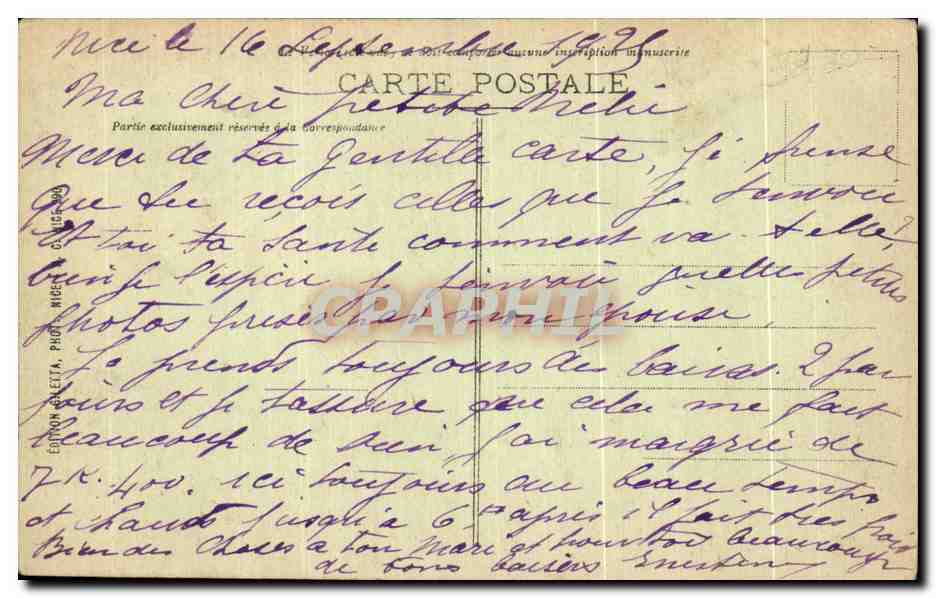 Nice le 16 Septembre 1925
Ce Verso
aucune inscription manuscrite
CARTE POSTALE
Ma cheré petite Melie
Partie exclusivement réservée à la Correspondance
Merci de ta gentille carte, Je pense
que tu reçois celles que je t'envoie
Et toi ta santé comment va-t-elle?
bien je l'espère je t'envoie quelles petites
photos prises par mon épouse,
Je prends toujours des bains. 2 par
jours et je t'assure que cela me fait
beaucoup de bien, J'ai maigrie de
7K.400. ici toujours du beau temps
et chaud jusqu'à 6 h après il fait tres frais
Bien des choses a ton Mari et pour toi beaucoup
de bons baisers Ernestine
ÉDITION GILETTA, PHOT., NICE
CARAPHIL